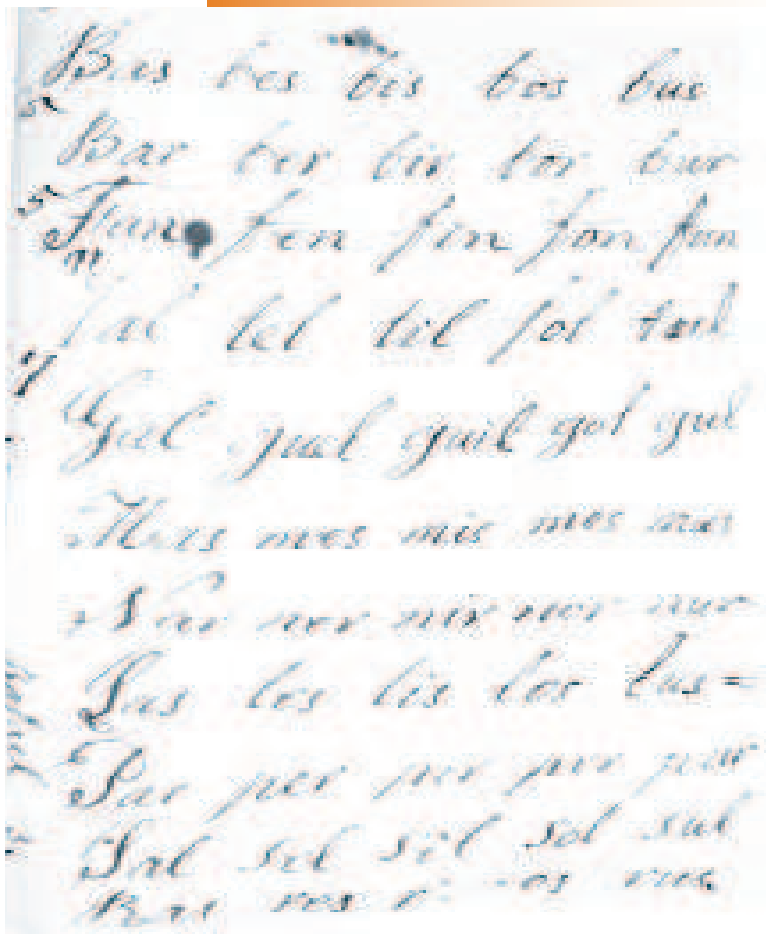 Bas bes bis bos bus
Bar ber bir bor bur
Fan fen fin fon fun
tel til fol
Gal guel guil gol gul
Mas mes mis mos mus
Nar ner nir nor nur
Las les lis los lus=
Par per pir por pur
Sal sel sil sol sul
Ras res rus